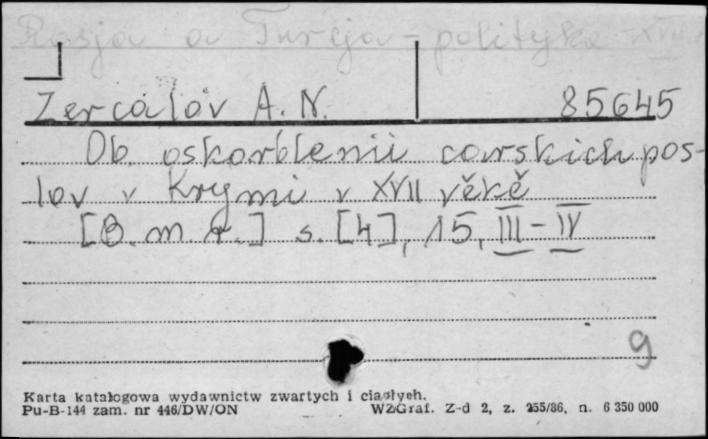 Rosja a Turcja - polityka XVII
Zercalov A. N. 85645
Ob oskorblenii carskich pos-
lov v Krymi v XVII věkě
[B. m. r.] s. [4], 15, III-IV
9
Karta katalogowa wydawnictw zwartych i ciągłych.
Pu-B-144 zam. nr 446/DW/ON WZGraf. Z-d 2, z. 255/86, n. 6 350 000